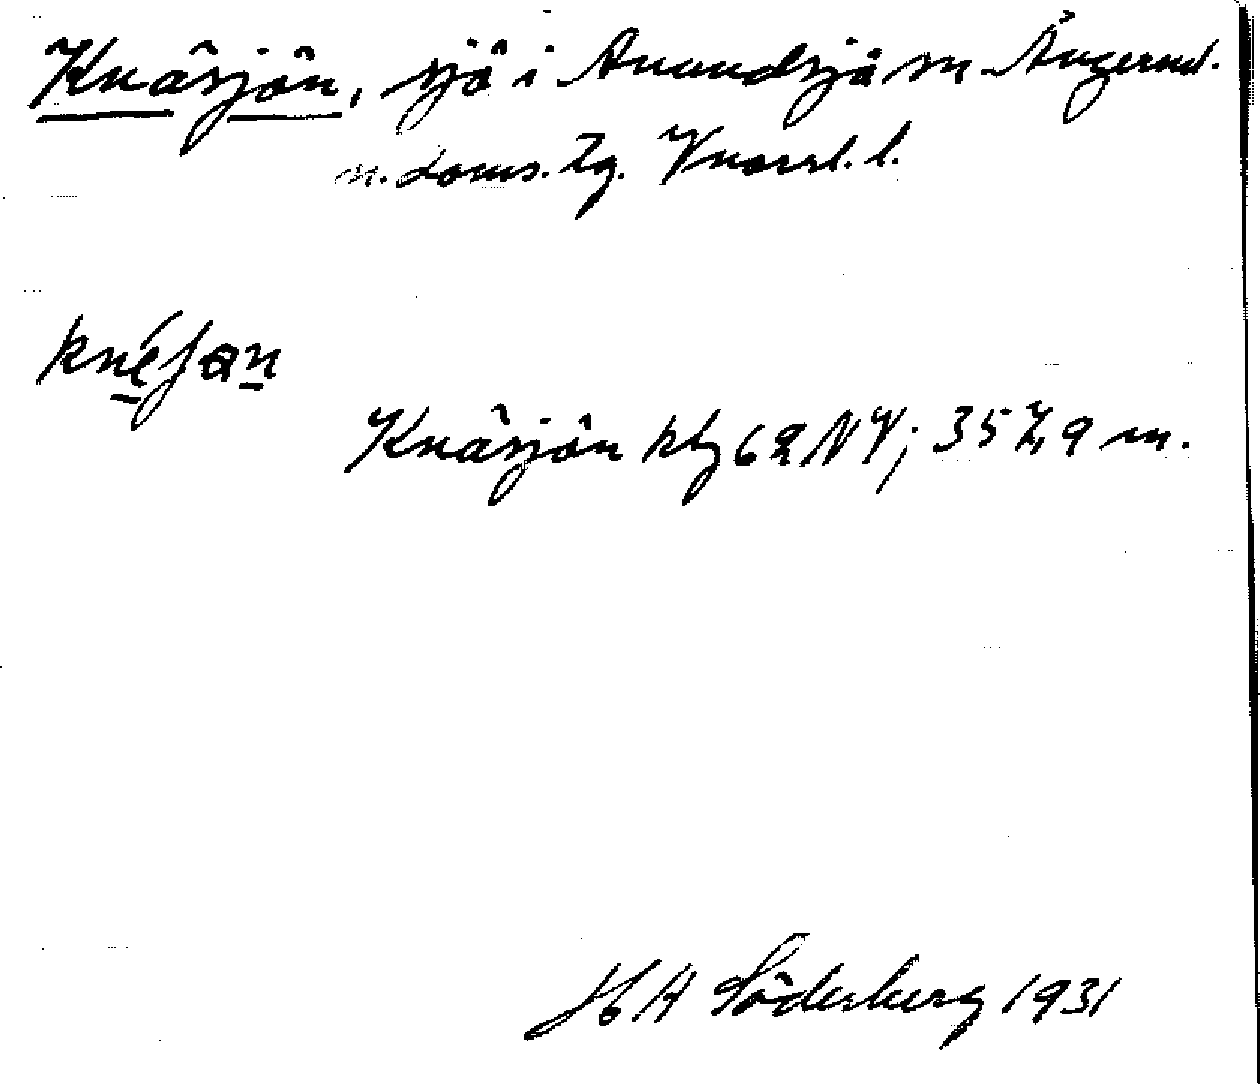 Knäsjön, sjö i Anundsjö sn Ångerml.
n. doms. tg. Vnorrl. l.
knéʃan
Knäsjön ktg 62 NV; 357,9 m.
HA Söderberg 1931